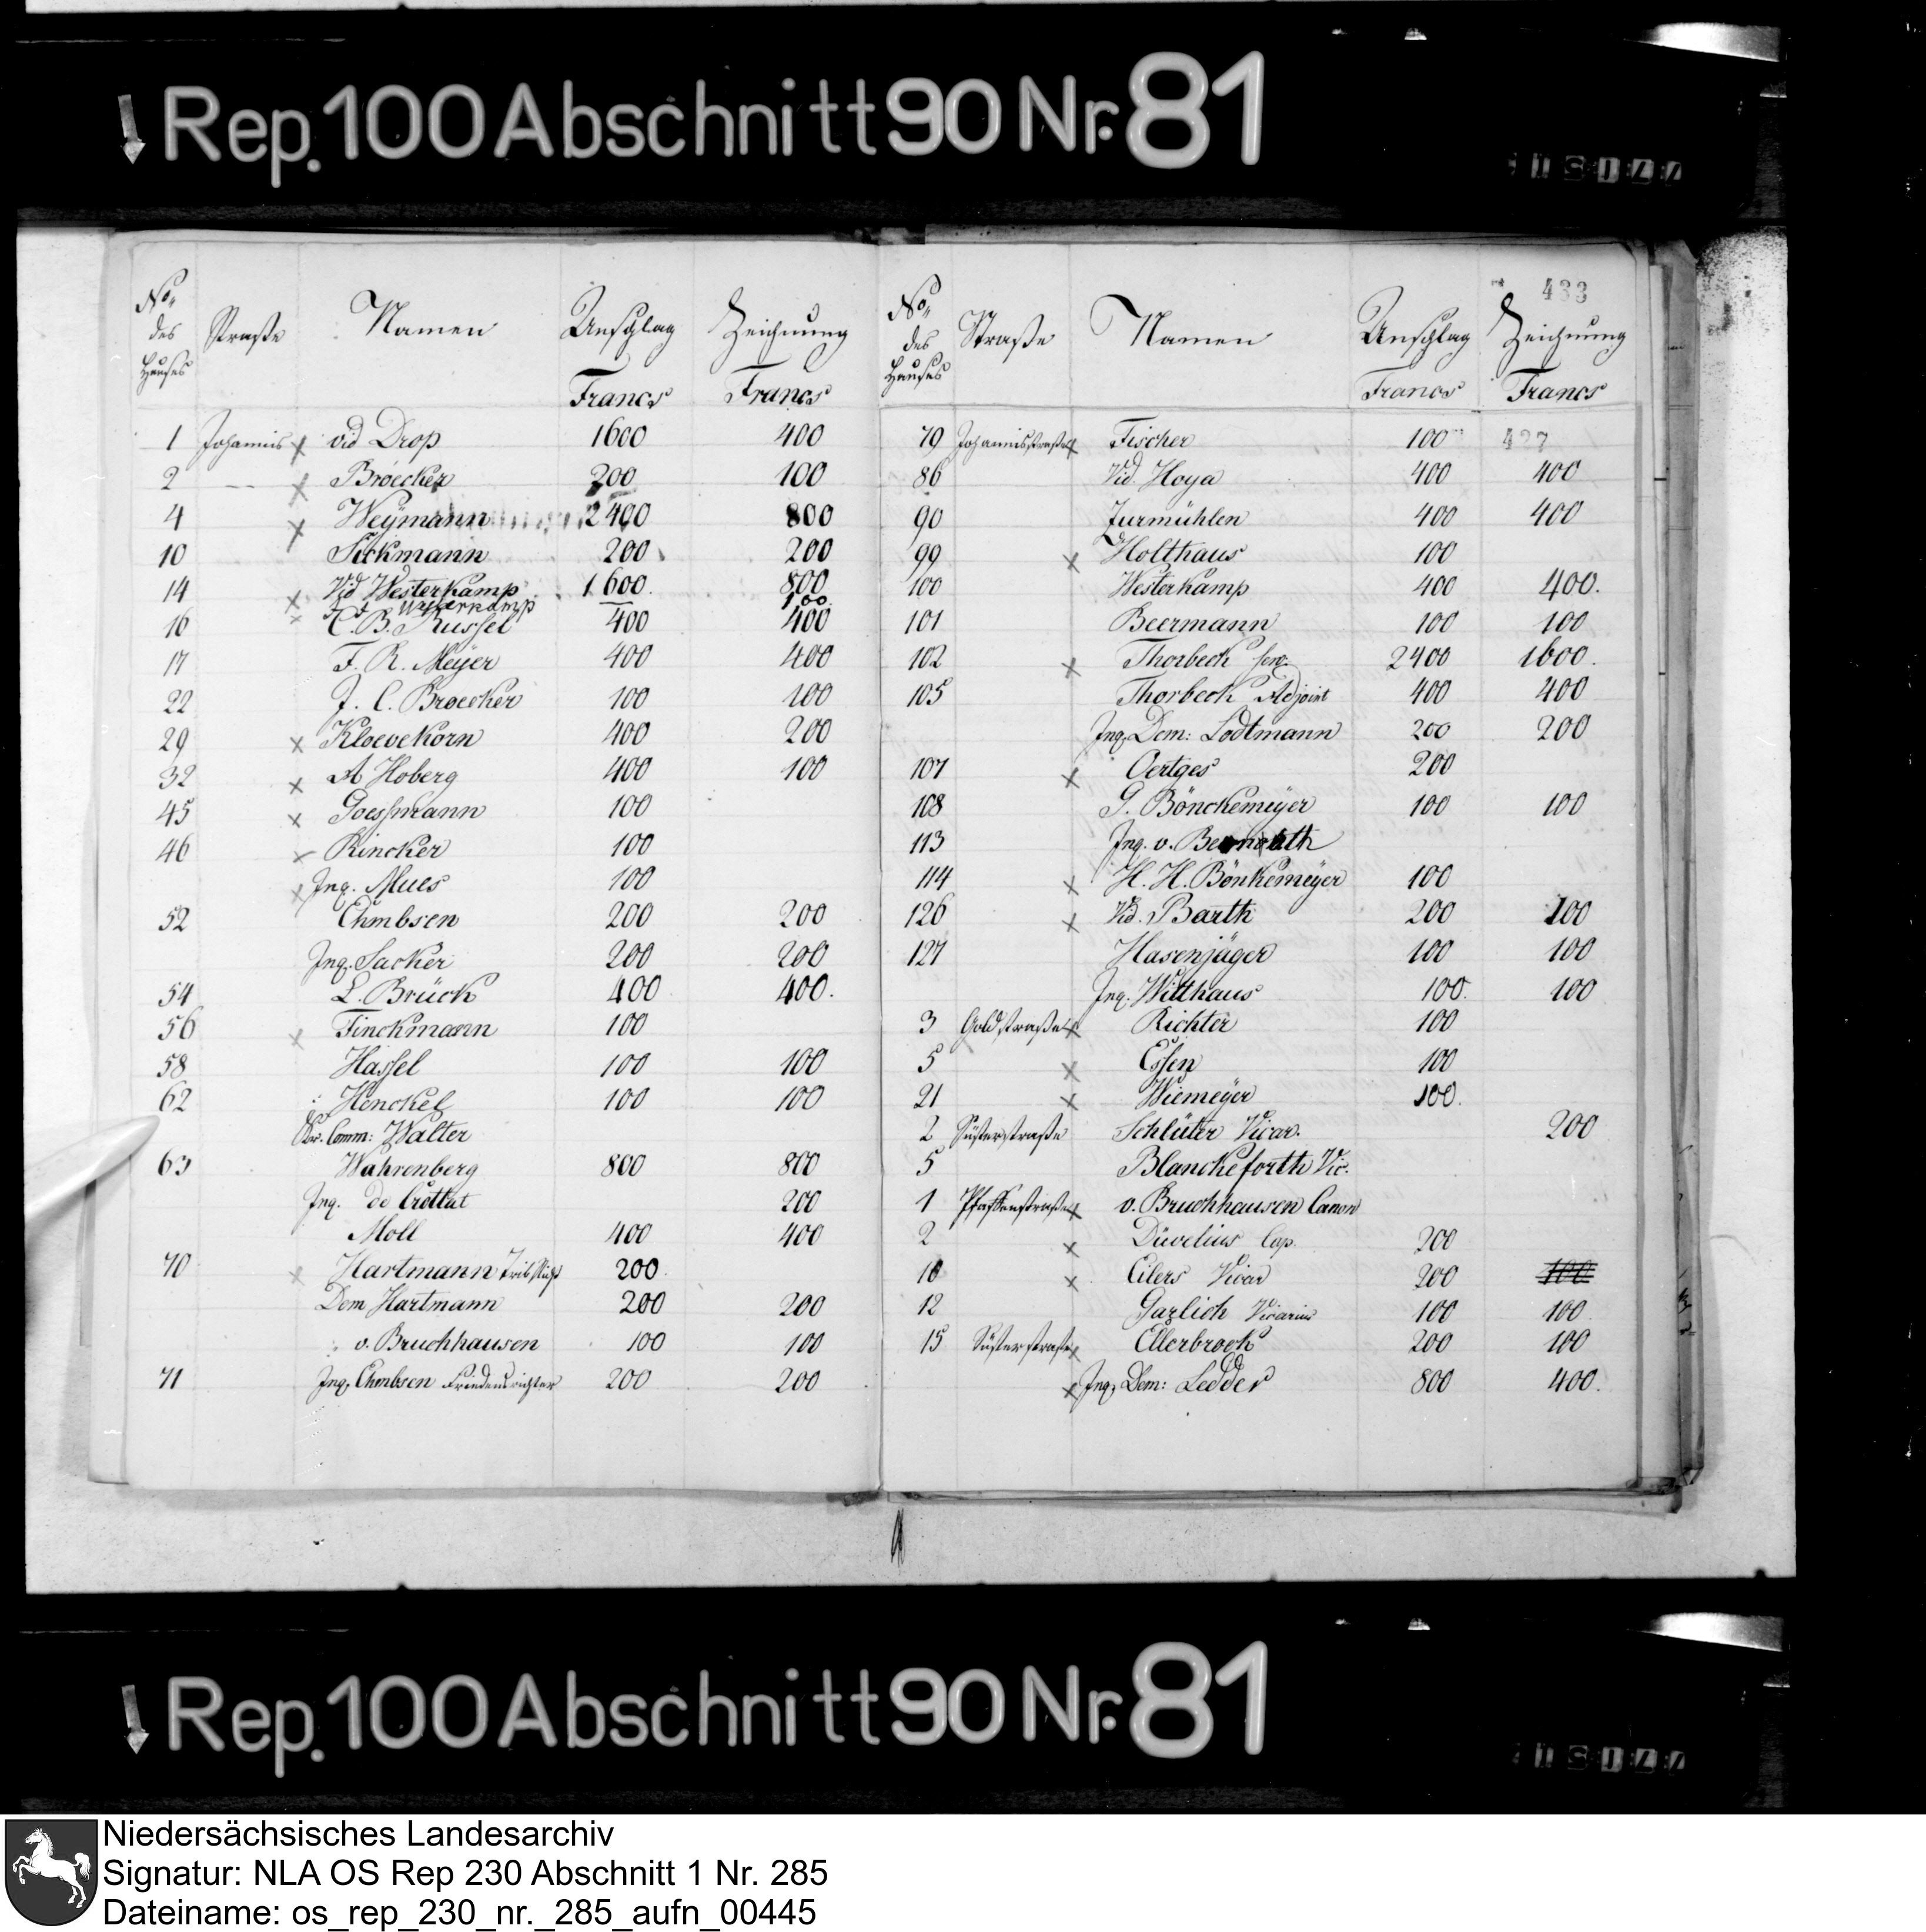 Rep. 100 Abschnitt 90 Nr. 81
No. des Hauses Straße Namen Anschlag Francs Zeichnung Francs
1 Johannis x vid Drop 1600 400
2 -- x Broecker 200 100
4 x Weÿmann 2400 800
10 Sickmann 200 200
14 x Vid Westerkamp 1600. 800
Westerkamp 100.
16 x C. B. Russel 400 400
17 F. R. Meÿer 400 400
22 J. C. Broecker 100 100
29 x Kloevekorn 400 200
32 x A Hoberg 400 100
45 x Goessmann 100
46 x Rincker 100
x Inq. Mues 100
52 Ehmbsen 200 200
Inq. Sacker 200 200
54 L. Brück 400 400.
56 x Finckmann 100
58 Hassel 100 100
62 Henckel 100 100
Comm: Walter
63 Wahrenberg 800 800
Inq. de Crottat 200
Moll 400 400
70 x Hartmann 200
Dem Hartmann 200 200
v. Bruchhausen 100 100
71 Inq. Ehmbsen Friedensrichter 200 200
433
No. des Hauses Straße Namen Anschlag Francs Zeichnung Francs
79 Johannisstraße x Fischer 100 427
86 Vid. Hoya 400 400
90 Zurmühlen 400 400
99 x Holthaus 100
100 Westerkamp 400 400.
101 Beermann 100 100
102 x Thorbeck sen. 2400 1600.
105 Thorbeck Adjoint 400 400
Inq. Dem: Lodtmann 200 200
107 x Oertges 200
108 G. Bönckemeÿer 100 100
113 Inq. v.
114 x H. H. Bönkemeÿer 100
126 x Vid. Barth 200 100
127 Hasenjäger 100 100
Inq. Witthaus 100. 100
3 Goldstraße x Richter 100
5 x Essen 100
21 x Wiemeÿer 100.
2 Süsterstraße Schlüter Vicar. 200
5 Blanckeforth Vic.
1 Pfaffenstraße x v. Bruchhausen Canon
2 x Düvelius Cap. 200
10 x Eilers Vicar 200 100
12 Gazlich Vicarius 100 100
15 Süsterstraße x Ellerbrock 200 100
x Inq. Dem: Ledder 800 400.
Rep. 100 Abschnitt 90 Nr. 81
Niedersächsisches Landesarchiv
Signatur: NLA OS Rep 230 Abschnitt 1 Nr. 285
Dateiname: os_rep_230_nr._285_aufn_00445